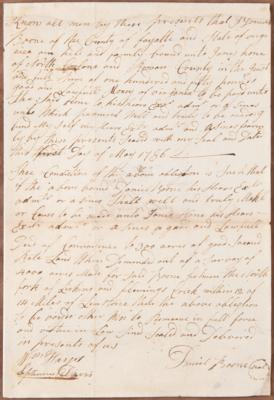 Know all men by these presents that I Daniel
Boone of the County of Fayette and State of
am held and firmly bound unto Jones
of North and Rowan County in the
Just Sum of one hundred
good and Lawfull Money of to be paid unto
the Said heirs Exrs adms or assigns
unto Which payment Well and truly to be made
bind My Self my heirs Exrs adms and assigns firmly
by these presents Sealed with my Seal and Dated
this first Day of May 1786
The Condition of the above obligation is Such that
if the above bound Daniel Boone his Heirs Exrs
adms or assigns Shall well and truly Make
or Cause to be made unto Jones his heirs
Exrs adms or assigns a good and Lawfull
Deed of Conveniance to 500 acres of good Second
Rate Land When out of a Survey of
4000 acres Made for Said Boone between the North
fork of Licking and flemings Creek within 12 or
14 Miles of Limstone then the above obligation
to be void other wise to Remain in full force
and virtue in Law Sind Sealed and Delivered
in presents of us
Wm Harget
Septimus Davis
Daniel Boone Seal